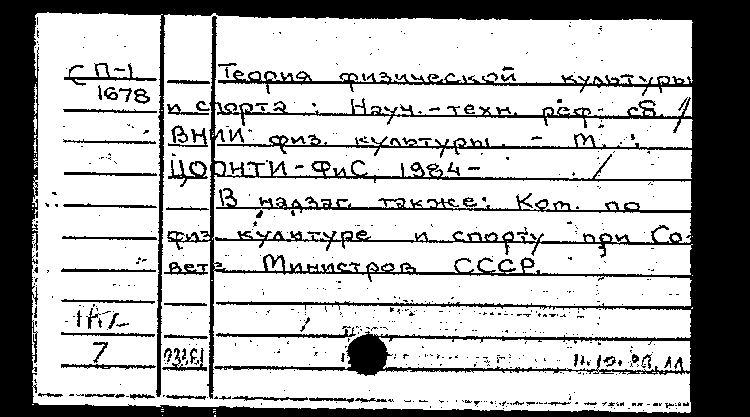 С П-1
1678
Теория физической культуры
и спорта : Науч.-техн. реф. сб. /
ВНИИ физ. культуры. - М. :
ЦООНТИ-ФиС, 1984-
В надзаг. также: Ком. по
физ культуре и спорту при Со-
вете Министров СССР.
7